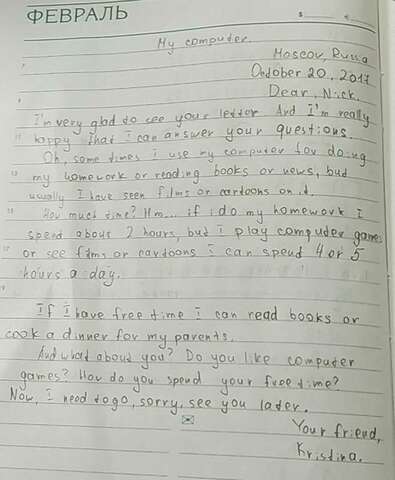 ФЕВРАЛЬ
My computer.
Moscow, Russia
October 20, 2017
Dear, Nick.
I'm very glad to see your letter And I'm really
happy that i can answer your questions.
Oh, some times i use my computer for doing
my homework or reading books or news, but
usually I have seen films or cartoons on it.
How much time? Hm... if i do my homework I
spend about 2 hours, but i play computer games
or see films or cartoons i can spend 4 or 5
hours a day.
If I have free time i can read books or
cook a dinner for my parents.
And what about you? Do you like computer
games? How do you spend your free time?
Now, I need to go, sorry, see you later.
Your friend,
Kristina.